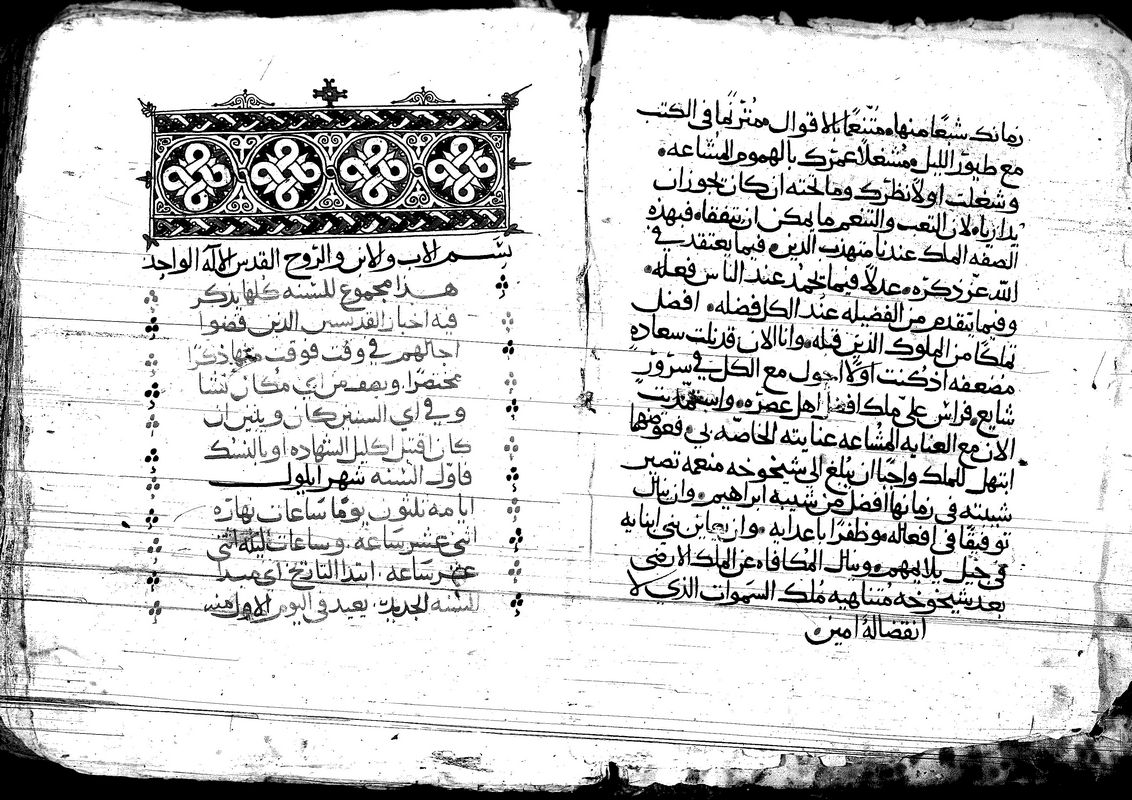 زمانك شبعًا منها، متنعمًا بالاقوال، مترنمًا في الكتب
مع طيور الليل، ومشغلًا عمرك بالهموم المشاعه،
وشغلت اولًا نظرك وما تحته ان كان يجوز ان
لان التعب والتنعم ما يمكن ان يتفقا، فبهذه
الصفه الملك عندنا مهذب الدين، فيما يعتقد في
الله عز ذكره، عدلًا فيما يحمد عند الناس فعله،
وفيما يتقدم من الفضيله عند الكل فضله، افضل
تملكًا من الملوك الذين قبله، وانا الان قد نلت سعاده
مضعفه اذ كنت اولًا اجول مع الكل في سرور
شايع، علي ملك افضل اهل عصره،
الان مع العنايه المشاعه عنايته الخاصه بي،
ابتهل للملك واجبًا ان يبلغ الي شيخوخه منعمه تصير
شيبته في زمانها افضل من شيبة ابراهيم، وان ينال
توفيقًا في افعاله، وظفرًا باعدايه، وان يعاين بني ابنايه
في جيل يلايمهم، وينال المكافاه عن الملك الارضي
بعد شيخوخه متناهيه ملك السموات الذي لا
انقضا له امين،
بسم الاب والابن والروح القدس الاله الواحد
هذا مجموع للسنه كلها يذكر
فيه اخبار القديسين الذين قضوا
اجالهم في وقت فوقت منها ذكرًا
مختصرًا ويصف من اي مكان نشا
وفي اي السنين كان وبتبين ان
كان اقتبل اكليل الشهاده او بالنسك
فاول السنه شهر ايلول
ايامه ثلثون يومًا ساعات نهاره
اثني عشر ساعه، وساعات ليله اثني
عشر ساعه، ابتدا التاريخ اي مبدا
للسنه الجديده، يعيد في اليوم الاول منه